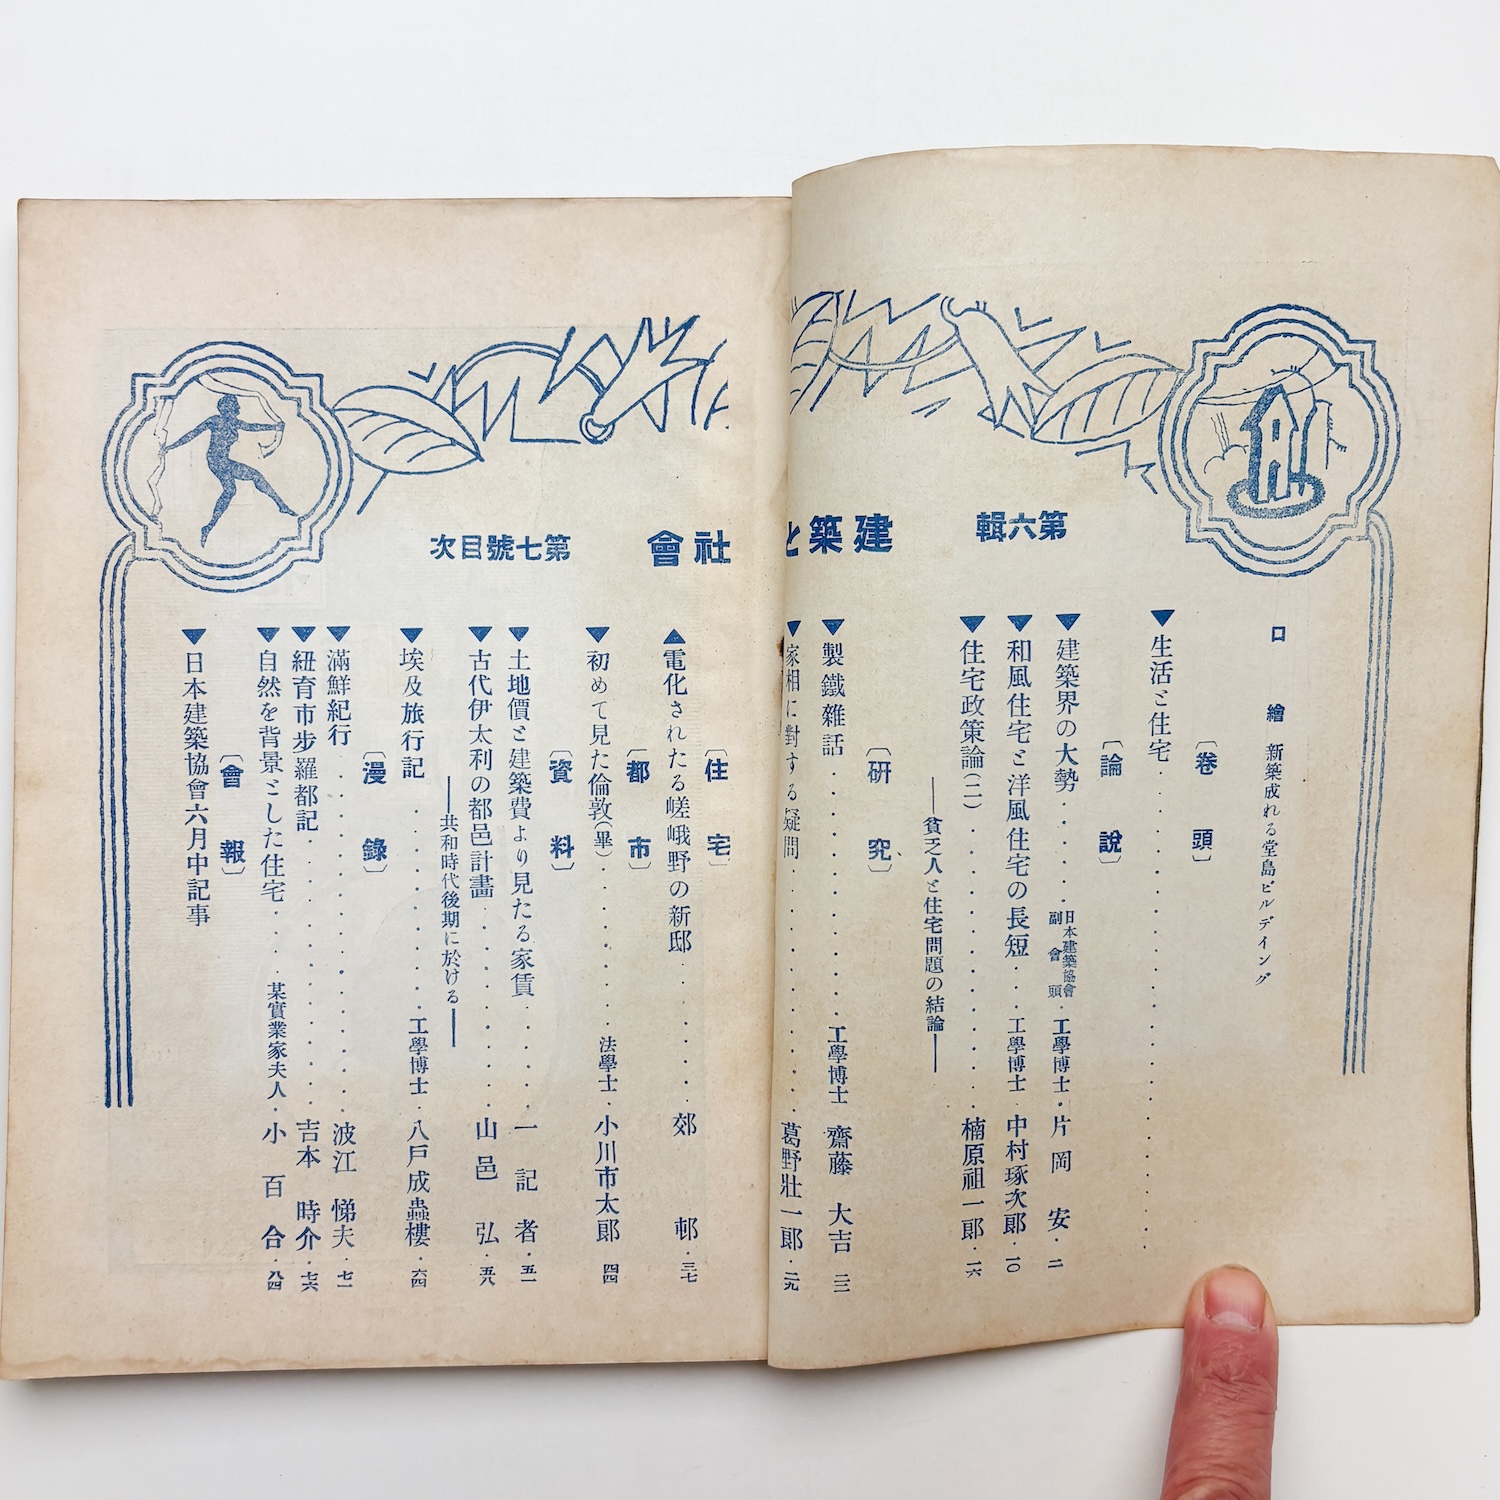 第六輯
建築と社會
第七號目次
口繪 新築成れる堂島ビルデイング
〔卷頭〕
▼生活と住宅
〔論說〕
▼建築界の大勢 日本建築協會副會頭 工學博士 片岡安 二
▼和風住宅と洋風住宅の長短 工學博士 中村琢次郞 一〇
▼住宅政策論(二) 楠原祖一郞 一六
――貧乏人と住宅問題の結論――
〔硏究〕
▼製鐵雜話 工學博士 齋藤大吉 二二
▼家相に對する疑問 葛野壯一郞 二九
〔住宅〕
▲電化されたる嵯峨野の新邸 郊邨 三七
〔都市〕
▼初めて見た倫敦(畢) 法學士 小川市太郞 四四
〔資料〕
▼土地價と建築費より見たる家賃 一記者 五一
▼古代伊太利の都邑計畫 山邑弘 五八
――共和時代後期に於ける――
▼埃及旅行記 工學博士 八戶成蟲樓 六四
〔漫錄〕
▼滿鮮紀行 波江悌夫 七一
▼紐育市步羅都記 吉本時介 七六
▼自然を背景とした住宅 某實業家夫人 小百合 八四
〔會報〕
▼日本建築協會六月中記事